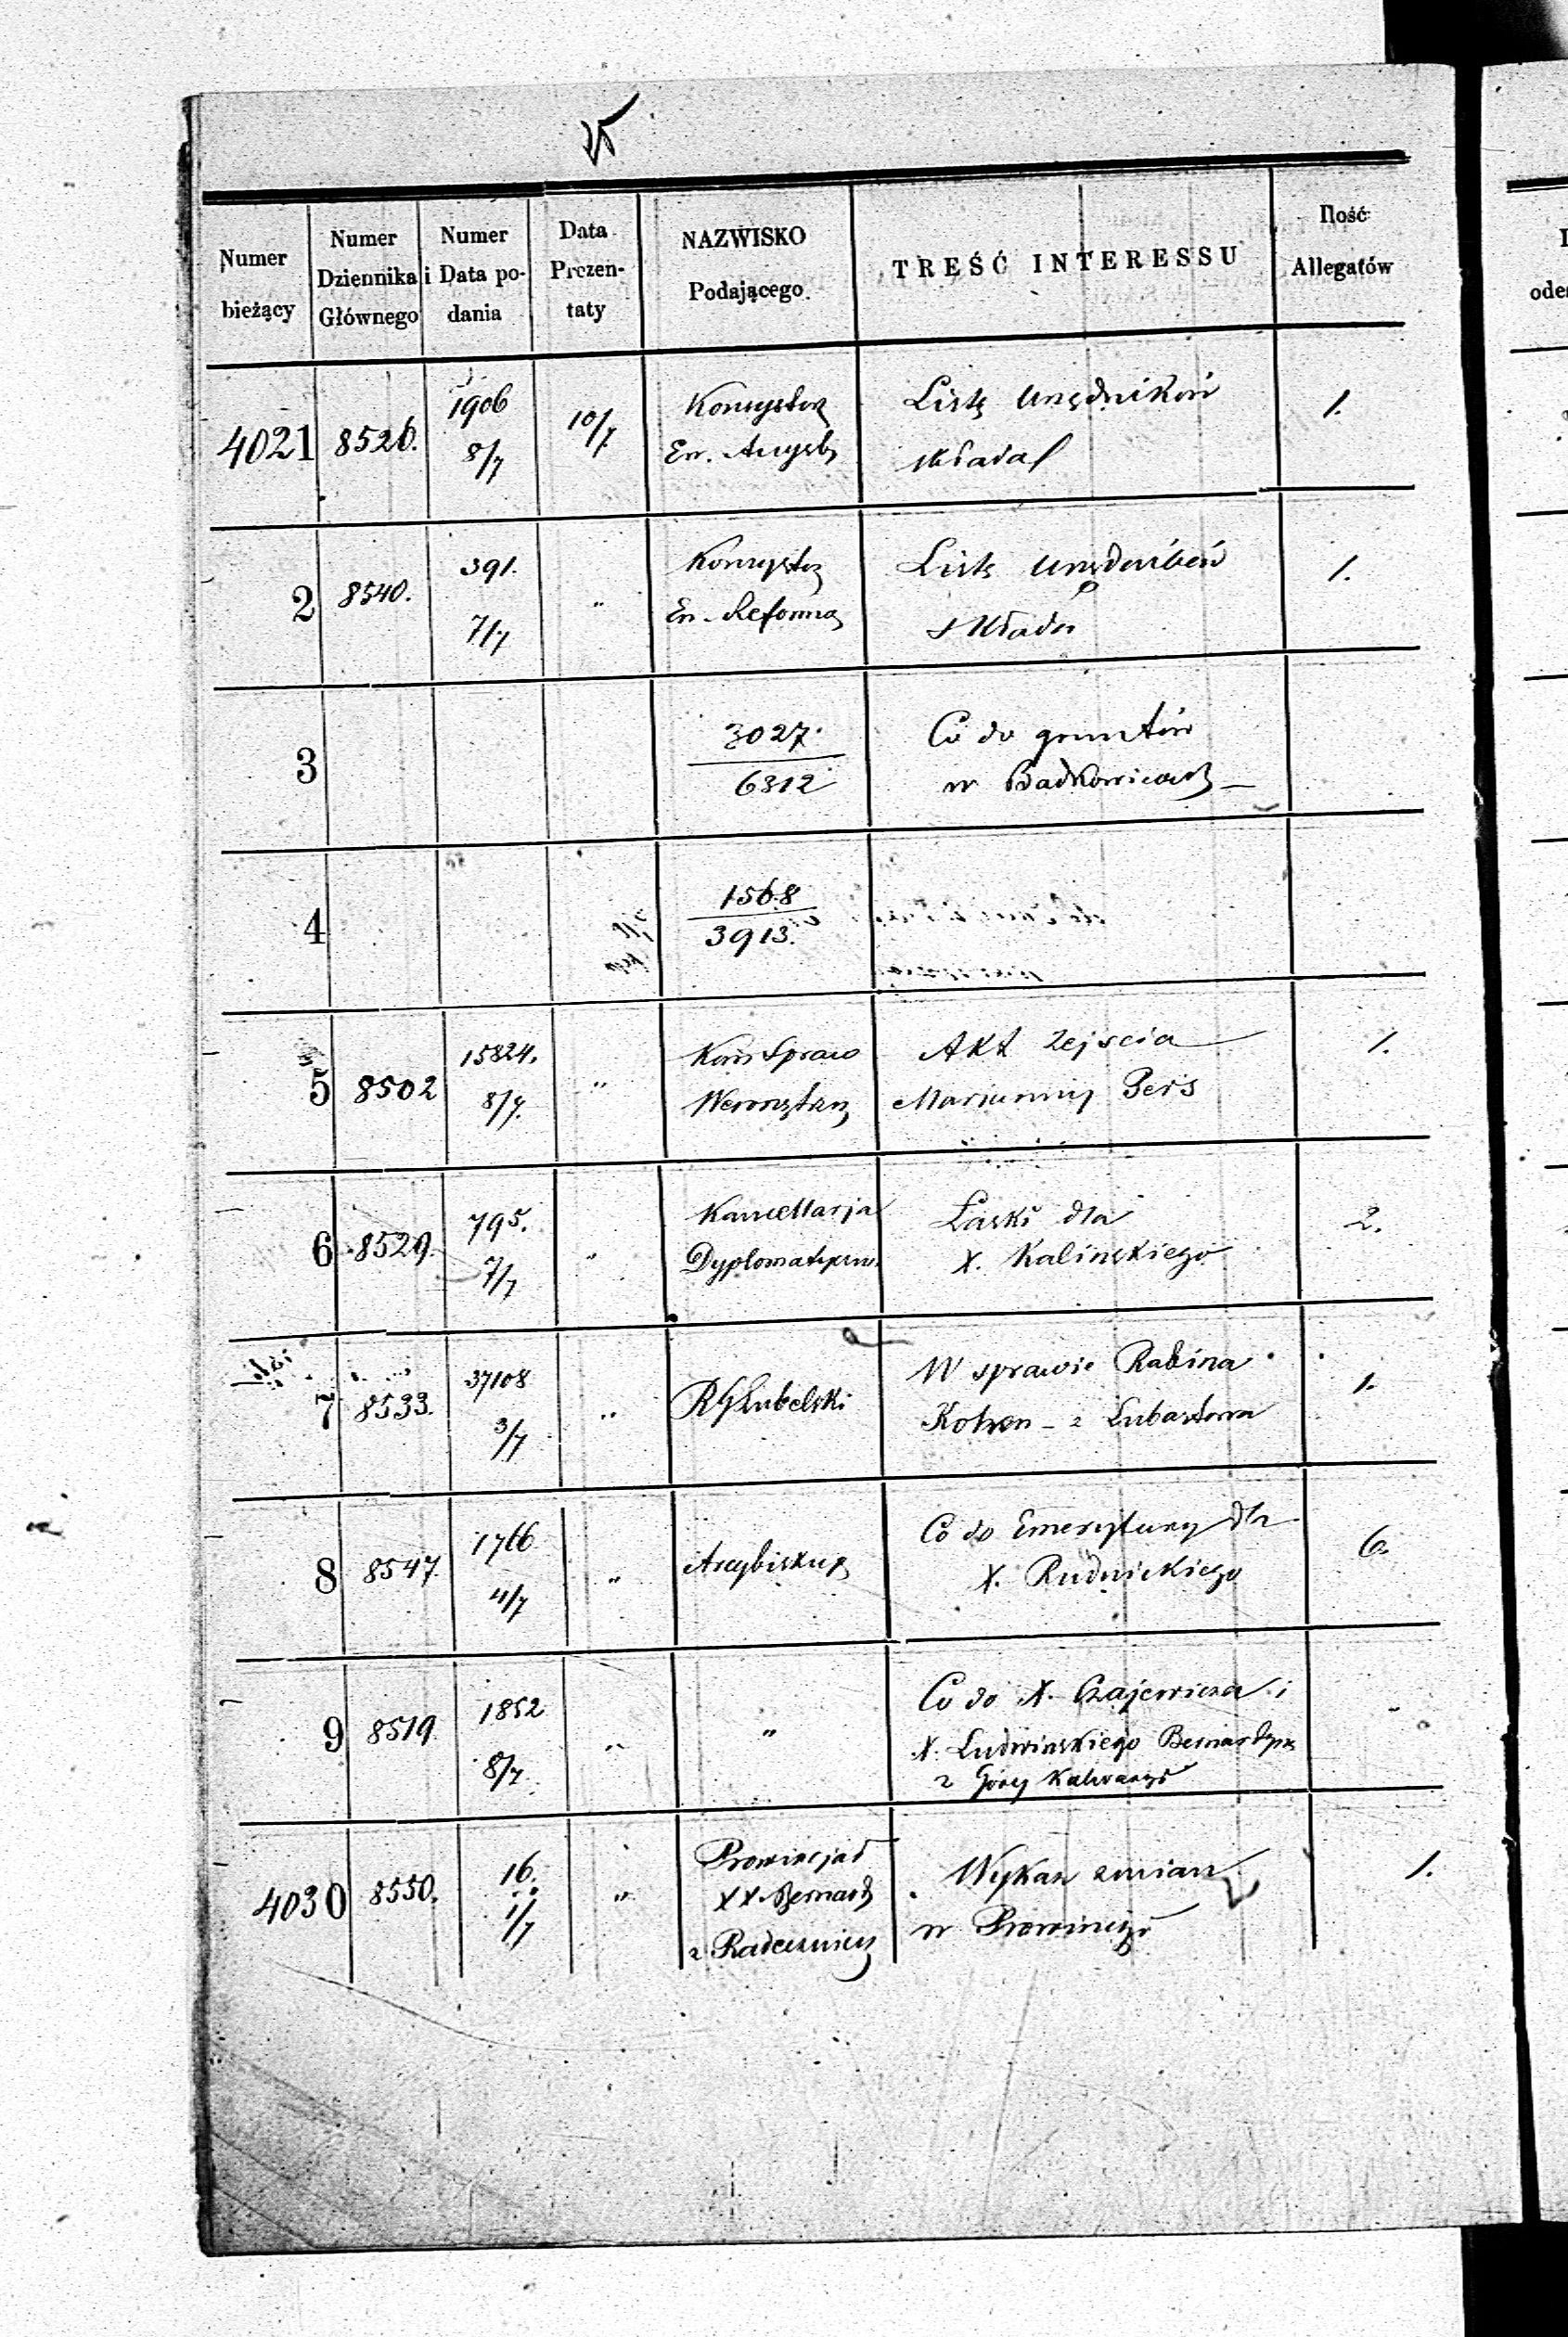 Numer bieżący
Numer Dziennika Głównego
Numer i Data po-dania
Data Prezen-taty
NAZWISKO Podającego.
TREŚĆ INTERESSU
Ilość Allegatów
4021 8526. 1906 8/7 10/7. Konsystorz Ew. Augsb Listę Urzędników składa 1.
2 8540. 391. 7/7 " Konsystorz Ew. Reform Listę Urzędników składa 1.
3 3027. 6312 Co do gruntów w
4 1568 3913.
5 8502 15824. 8/7. " Kom Spraw Wewnętrz Akt Zejścia Maryanny 1.
6 8529. 795. 7/7 " Kancellarja Dyplomatyczn. Łaski dla X. Kalinskiego 2.
7 8533. 37108 3/7 " RGLubelski W sprawie Rabina z Lubartowa 1.
8 8547. 1766 4/7 " Arcybiskup Co do Emerytury dla X. Rudnickiego 6.
9 8519 1852 8/7. " " Co do X. i X. Ludwinskiego z Góry Kalwaryi -
4030 8550. 16. 1/7 " Prowincjał XX. Bernard z Radecznicy Wykaz zmian w Prowincyi 1.